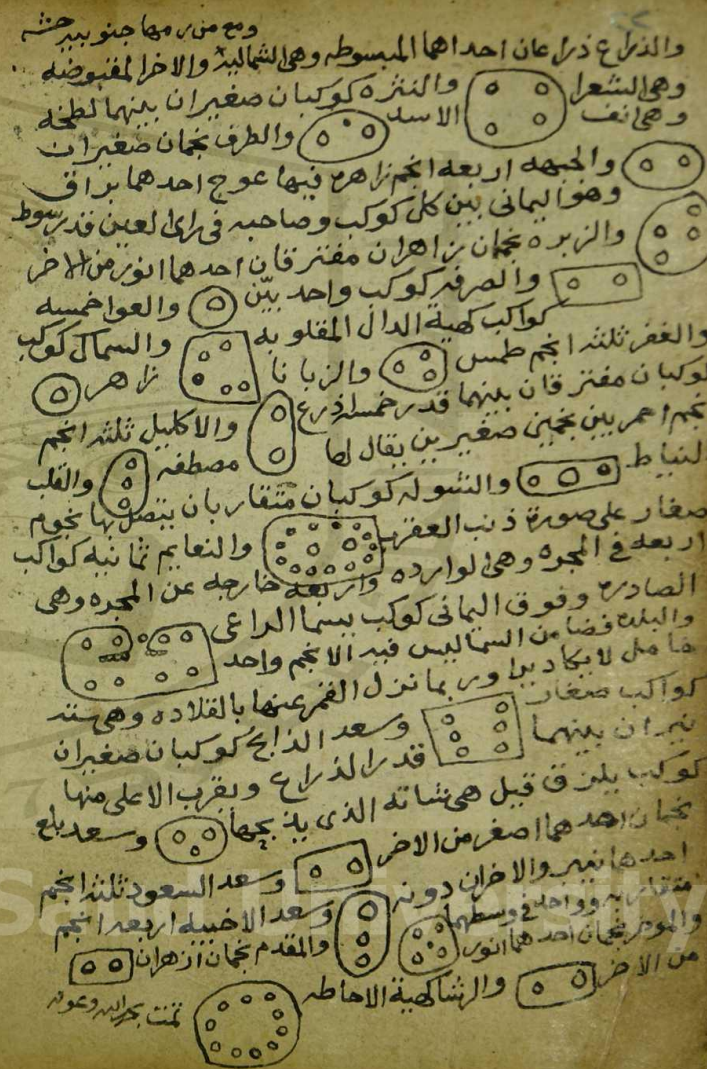 ومع من
والذراع ذراعان احداهما المبسوطه وهى الشماليه والاخرا المقبوضه
وهى الشعرا والنثره كوكبان صغيران بينهما لطخه
وهى انف الاسد والطرف نجمان صغيران
والجبهه اربعه انجم زاهره فيها عوج احدهما براق
وهو اليمانى بين كل كوكب وصاحبه فى راى العين قدر سوط
والزبره نجمان زاهران مفترقان احدهما انور من الاخر
والصرفه كوكب واحد بيّن والعوا خمسه
كواكب كهية الدال المقلوبه والسماك كوكب
زاهر والغفر ثلثه انجم طمس والزبانا
كوكبان مفترقان بينهما قدر خمسه اذرع والاكليل ثلثه انجم
مصطفه والقلب نجم احمر بين نجمين صغيرين يقال لها
النياط والشوله كوكبان متقاربان يتصل بها نجوم
صغار على صورة ذنب العقرب والنعايم ثمانيه كواكب
اربعه فى المجره وهى الوارده واربعه خارجه عن المجره وهى
الصادره وفوق اليمانى كوكب يسما الراعى
والبلده فضا من السما ليس فيه الا نجم واحد
خامل لا يكاد يرا وربما نزل القمر عنها بالقلاده وهى سته
كواكب صغار وسعد الذابح كوكبان صغيران
نيران بينهما قدر الذراع وبقرب الاعلى منها
كوكب يلزق قيل هى شاته الذى يذبحها وسعد بلع
نجمان احدهما اصغر من الاخر وسعد السعود ثلثه انجم
احدها نير والاخران دونه وسعد الاخبيه اربعه انجم
متقاربه وواحد فى وسطها والمقدم نجمان ازهران
والموخر نجمان احدهما انور
من الاخر والرشا كهية الاحاطه
تمت بحمد الله وعونه
Sa University